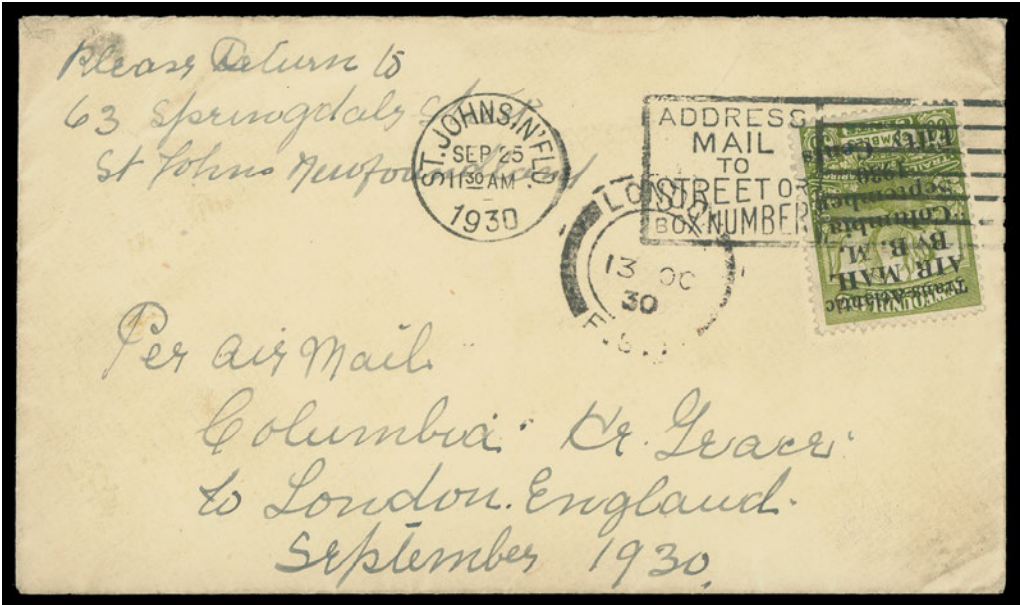 Please Return to
63 Springdale St
St Johns Newfoundland
ST. JOHNS N'FLD
SEP 25
11 30 AM
1930
ADDRESS
MAIL
TO
STREET OR
BOX NUMBER
LONDON
13 OC
30
F.S.
Trans-Atlantic
AIR MAIL
By B. M.
Columbia
September
1930
Fifty Cents
Per Air Mail
Columbia Hr. Grace
to London. England.
September 1930.